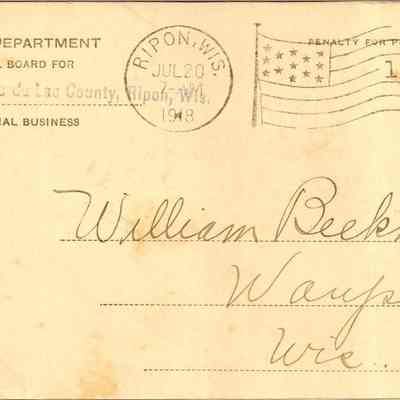 DEPARTMENT
BOARD FOR
du Lac County, Ripon, Wis.
AL BUSINESS
RIPON, WIS.
JUL 20
1918
PENALTY FOR P
1
William Beek
Waup
Wis.